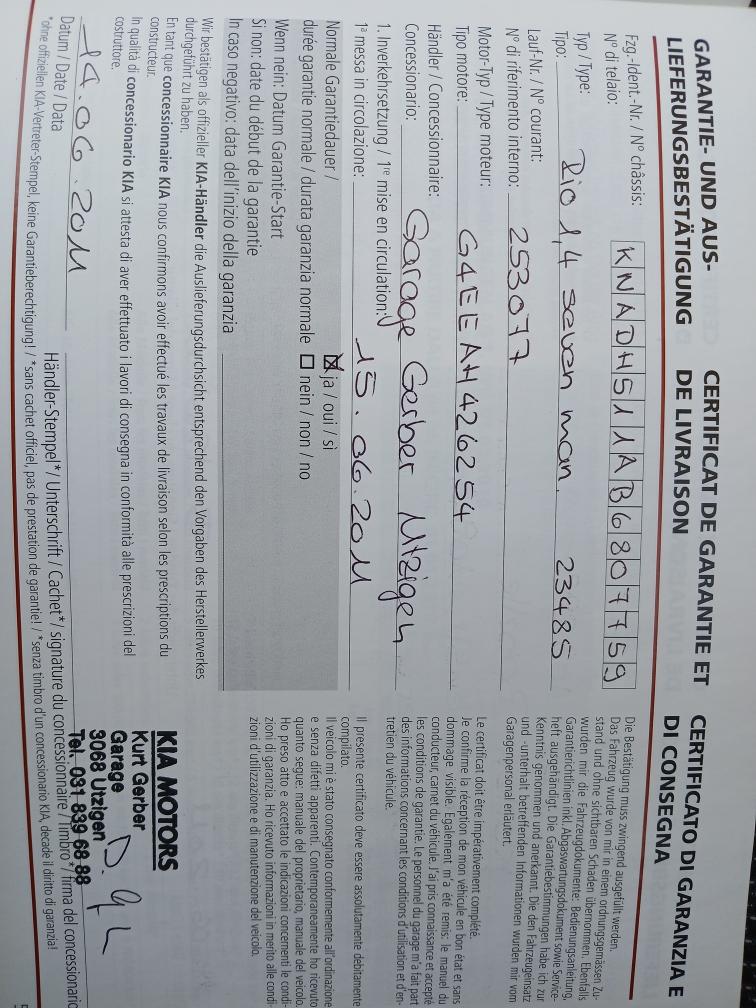 GARANTIE- UND AUS-
LIEFERUNGSBESTÄTIGUNG
CERTIFICAT DE GARANTIE ET
DE LIVRAISON
CERTIFICATO DI GARANZIA E
DI CONSEGNA
Fzg.-Ident.-Nr. / N° châssis:
N° di telaio: KNADH511AB6807759
Typ / Type:
Tipo: Rio 1,4 seven man. 23485
Lauf-Nr. / N° courant:
N° di riferimento interno: 253077
Motor-Typ / Type moteur:
Tipo motore: G4EEAH426254
Händler / Concessionnaire:
Concessionario: Garage Gerber Utzigen
1. Inverkehrsetzung / 1re mise en circulation:
1a messa in circolazione: 15.06.2011
Normale Garantiedauer /
durée garantie normale / durata garanzia normale
☒ ja / oui / sì
☐ nein / non / no
Wenn nein: Datum Garantie-Start
Si non: date du début de la garantie
In caso negativo: data dell'inizio della garanzia
Wir bestätigen als offizieller KIA-Händler die Auslieferungsdurchsicht entsprechend den Vorgaben des Herstellerwerkes
durchgeführt zu haben.
En tant que concessionnaire KIA nous confirmons avoir effectué les travaux de livraison selon les prescriptions du
constructeur.
In qualità di concessionario KIA si attesta di aver effettuato i lavori di consegna in conformità alle prescrizioni del
costruttore.
14.06.2011
Datum / Date / Data
Händler-Stempel* / Unterschrift / Cachet* / signature du concessionnaire / Timbro* / firma del concessionario
*ohne offiziellen KIA-Vertreter-Stempel, keine Garantieberechtigung! / *sans cachet officiel, pas de prestation de garantie! / *senza timbro d'un concessionario KIA, decade il diritto di garanzia!
Die Bestätigung muss zwingend ausgefüllt werden.
Das Fahrzeug wurde von mir in einem ordnungsgemässen Zu-
stand und ohne sichtbaren Schaden übernommen. Ebenfalls
wurden mir die Fahrzeugdokumente: Bedienungsanleitung,
Garantierichtlinien inkl. Abgaswartungsdokument sowie Service-
heft ausgehändigt. Die Garantiebestimmungen habe ich zur
Kenntnis genommen und anerkannt. Die den Fahrzeugeinsatz
und -unterhalt betreffenden Informationen wurden mir vom
Garagenpersonal erläutert.
Le certificat doit être impérativement complété.
Je confirme la réception de mon véhicule en bon état et sans
dommage visible. Egalement m'a été remis: le manuel du
conducteur, carnet du véhicule. J'ai pris connaissance et accepté
les conditions de garantie. Le personnel du garage m'a fait part
des informations concernant les conditions d'utilisation et d'en-
tretien du véhicule.
Il presente certificato deve essere assolutamente debitamente
compilato.
Il veicolo mi è stato consegnato conformemente all'ordinazione
e senza difetti apparenti. Contemporaneamente ho ricevuto
quanto segue: manuale del proprietario, manuale del veicolo.
Ho preso atto e accettato le indicazioni concernenti le condi-
zioni di garanzia. Ho ricevuto informazioni in merito alle condi-
zioni d'utilizzazione e di manutenzione del veicolo.
KIA MOTORS
Kurt Gerber
Garage
3068 Utzigen
Tel. 031 839 68 88